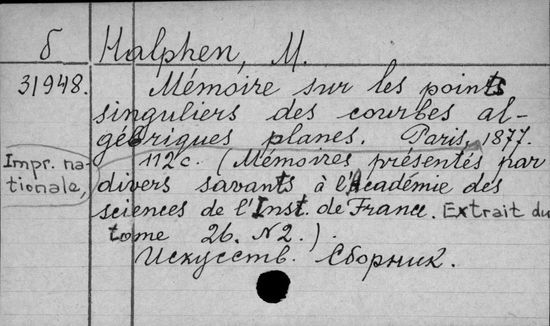 б Halphen, M.
31948. Mémoire sur les points
singuliers des courbes al-
gébriques planes. Paris, 1877.
Impr. na- 112 c. (Mémoires présentés par
tionale, divers savants à l'Académie des
sciences de l'Inst. de France. Extrait du
tome 26. N2.)
Искусств. Сборник.